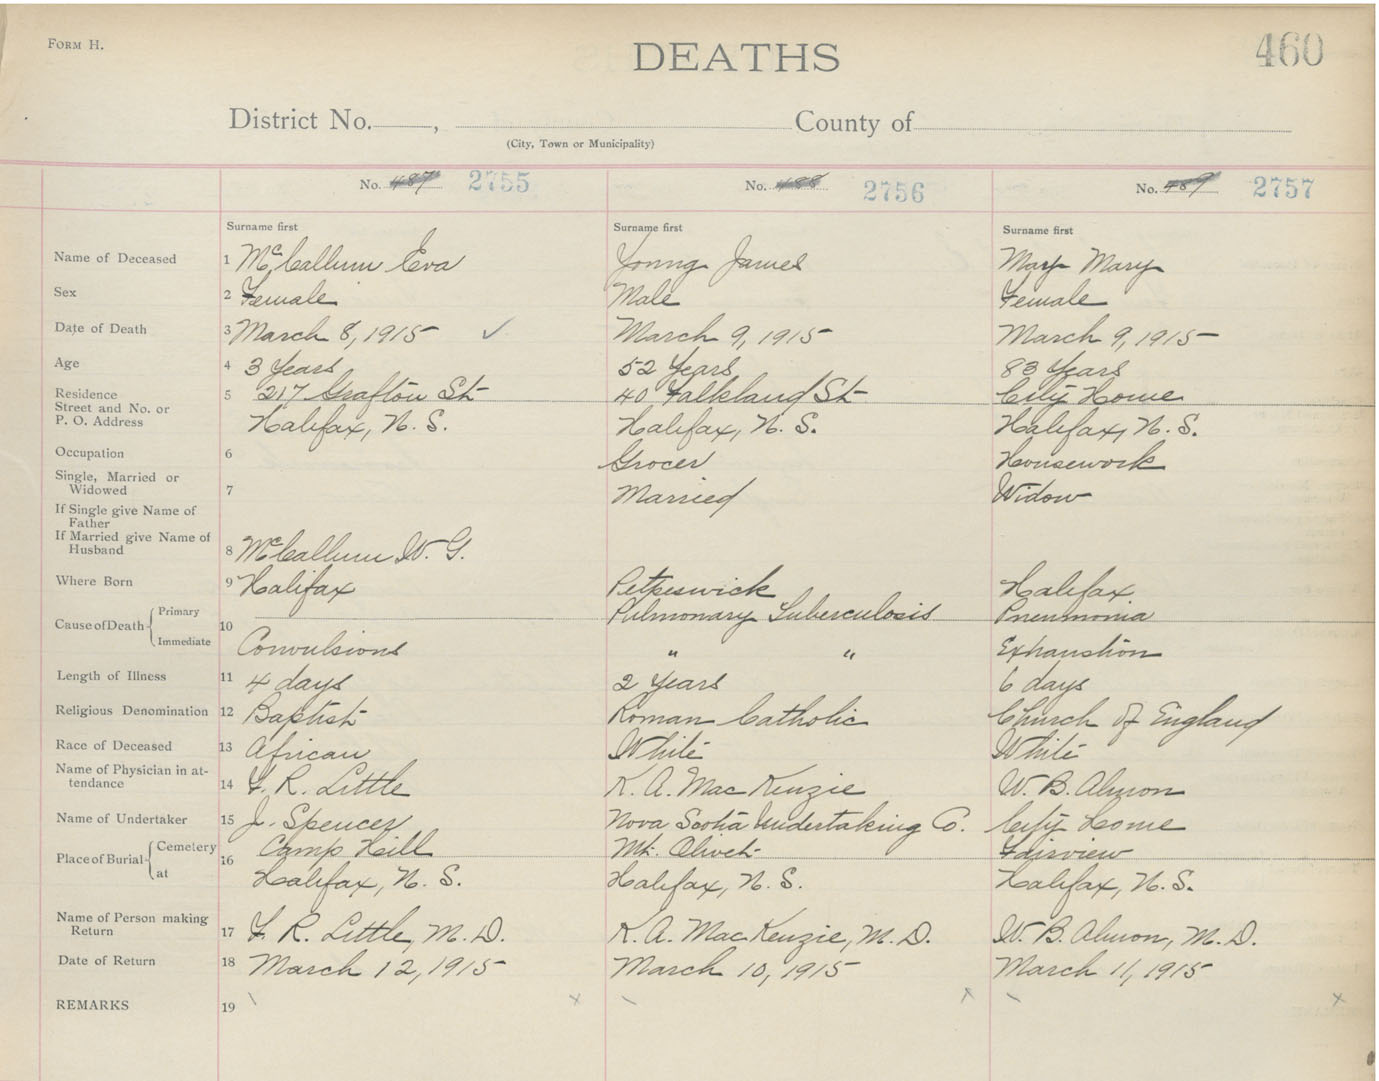 FORM H.
DEATHS
460
District No. , County of
(City, Town or Municipality)
No. 487 2755 No. 488 2756 No. 489 2757
Surname first Surname first Surname first
Name of Deceased 1 McCallum Eva Young James Mary
Sex 2 Female Male Female
Date of Death 3 March 8, 1915 ✓ March 9, 1915 March 9, 1915
Age 4 3 Years 52 Years 83 Years
Residence 5 217 Grafton St 40 Falkland St City Home
Street and No. or
P. O. Address Halifax, N. S. Halifax, N. S. Halifax, N. S.
Occupation 6 Grocer Housework
Single, Married or
Widowed 7 Married Widow
If Single give Name of
Father
If Married give Name of
Husband 8 McCallum W. G.
Where Born 9 Halifax Petpeswick Halifax
Cause of Death Primary 10 Pulmonary Tuberculosis Pneumonia
Immediate Convulsions " " Exhaustion
Length of Illness 11 4 days 2 Years 6 days
Religious Denomination 12 Baptist Roman Catholic Church of England
Race of Deceased 13 African White White
Name of Physician in at-
tendance 14 F. R. Little K. A. MacKenzie W. B. Almon
Name of Undertaker 15 J. Spencer Nova Scotia Undertaking Co. City Home
Place of Burial Cemetery 16 Camp Hill Mt. Olivet Fairview
at Halifax, N. S. Halifax, N. S. Halifax, N. S.
Name of Person making
Return 17 F. R. Little, M. D. K. A. MacKenzie, M. D. W. B. Almon, M. D.
Date of Return 18 March 12, 1915 March 10, 1915 March 11, 1915
REMARKS 19 x x x